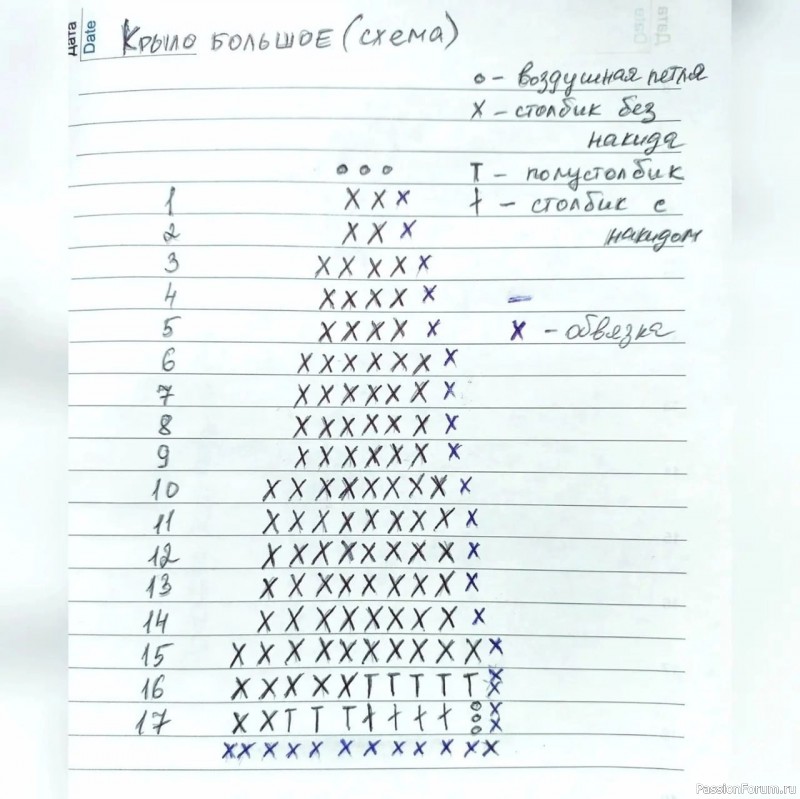 Дата
Date
Крыло большое (схема)
о – воздушная петля
X – столбик без
накида
о о о T – полустолбик
1 X X X ƚ – столбик с
2 X X X накидом
3 X X X X X
4 X X X X X –
5 X X X X X X – обвязка
6 X X X X X X X
7 X X X X X X X
8 X X X X X X X
9 X X X X X X X
10 X X X X X X X X X
11 X X X X X X X X X
12 X X X X X X X X X
13 X X X X X X X X X
14 X X X X X X X X X
15 X X X X X X X X X X X
16 X X X X X T T T T T X X
17 X X T T T ƚ ƚ ƚ ƚ о о о X X
X X X X X X X X X X X X
PassionForum.ru